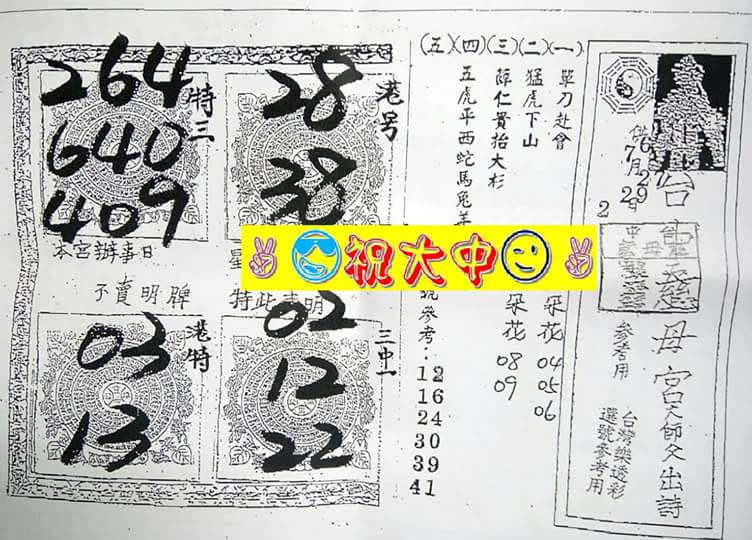 264
640
409
特三
28
38
港号
本宮辦事日
不賣明牌
03
13
港特
02
12
22
三中一
祝大中
(五)(四)(三)(二)(一)
單刀赴會
猛虎下山
薛仁貴抬大杉
五虎平西蛇馬兔羊
采花 04 05 06
采花 08 09
號參考:
12
16
24
30
39
41
母宮大師父出詩
參考用
台灣樂透彩
選號參考用